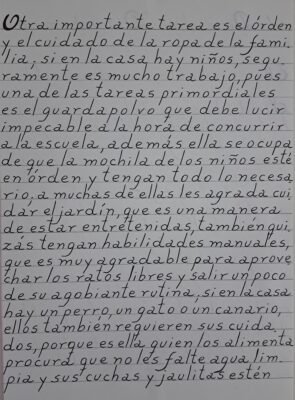 Otra importante tarea es el órden
y el cuidado de la ropa de la fami-
lia, si en la casa hay niños, segu-
ramente es mucho trabajo, pues
una de las tareas primordiales
es el guardapolvo que debe lucir
impecable a la hora de concurrir
a la escuela, además ella se ocupa
de que la mochila de los niños esté
en órden y tengan todo lo necesa-
rio, a muchas de ellas les agrada cui
dar el jardín, que es una manera
de estar entretenidas, también qui-
zás tengan habilidades manuales,
que es muy agradable para aprove
char los ratos libres y salir un poco
de su agobiante rutina, si en la casa
hay un perro, un gato o un canario,
ellos también requieren sus cuida_
dos, porque es ella quien los alimenta
procura que no les falte agua lim_
pia y sus cuchas y jaulitas estén